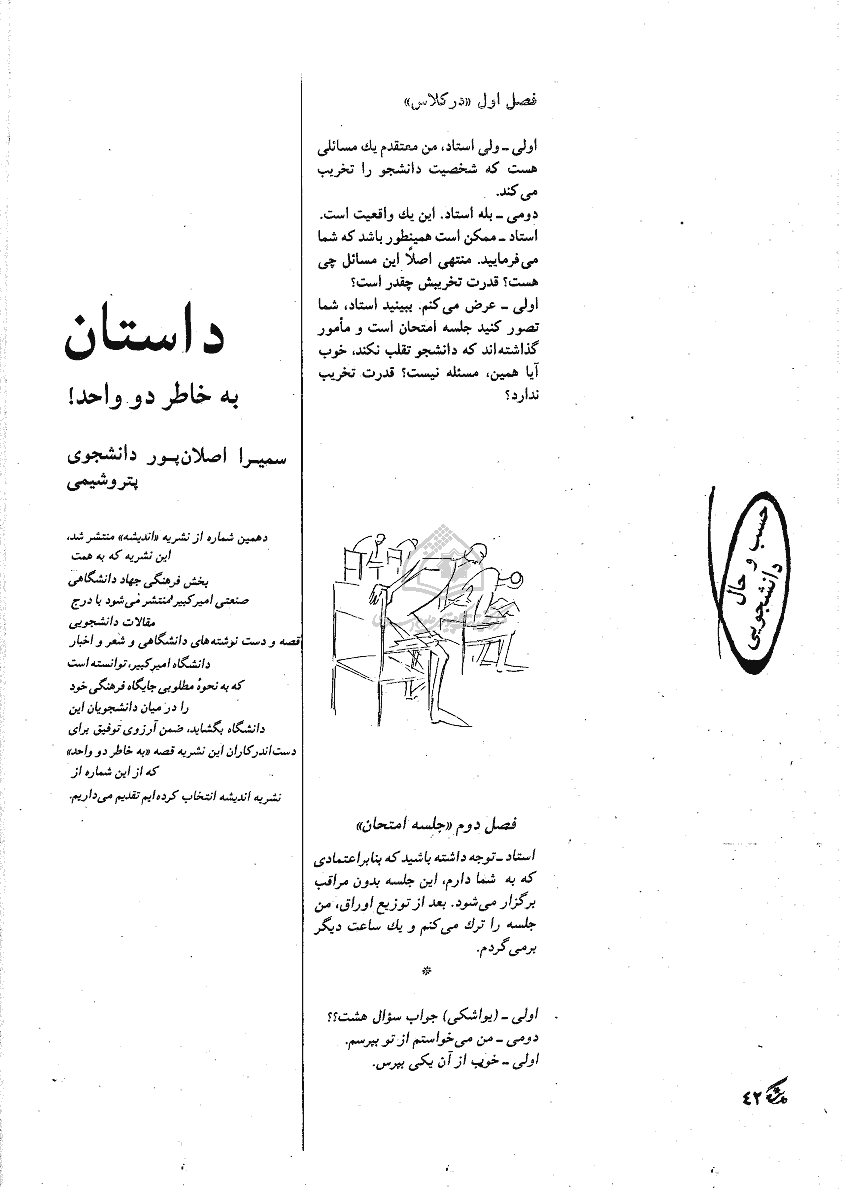 حسب و حال
دانشجویی
فصل اول «در کلاس»
اولی ـ ولی استاد، من معتقدم یك مسائلی
هست که شخصیت دانشجو را تخریب
می‌کند.
دومی ـ بله استاد. این یك واقعیت است.
استاد ـ ممکن است همینطور باشد که شما
می‌فرمایید. منتهی اصلاً این مسائل چی
هست؟ قدرت تخریبش چقدر است؟
اولی ـ عرض می‌کنم. ببینید استاد، شما
تصور کنید جلسه امتحان است و مأمور
گذاشته‌اند که دانشجو تقلب نکند، خوب
آیا همین، مسئله نیست؟ قدرت تخریب
ندارد؟
فصل دوم «جلسه امتحان»
استاد ـ توجه داشته باشید که بنابراعتمادی
که به شما دارم، این جلسه بدون مراقب
برگزار می‌شود. بعد از توزیع اوراق، من
جلسه را ترك می‌کنم و یك ساعت دیگر
برمی‌گردم.
*
اولی ـ (یواشکی) جواب سؤال هشت؟؟
دومی ـ من می‌خواستم از تو بپرسم.
اولی ـ خوب از آن یکی بپرس.
داستان
به خاطر دو واحد!
سمیـرا اصلان‌پـور دانشجوی
پتروشیمی
دهمین شماره از نشریه «اندیشه» منتشر شد،
این نشریه که به همت
بخش فرهنگی جهاد دانشگاهی
صنعتی امیرکبیر منتشر می‌شود با درج
مقالات دانشجویی
قصه و دست نوشته‌های دانشگاهی و شعر و اخبار
دانشگاه امیرکبیر، توانسته است
که به نحوهٔ مطلوبی جایگاه فرهنگی خود
را در میان دانشجویان این
دانشگاه بگشاید، ضمن آرزوی توفیق برای
دست‌اندرکاران این نشریه قصه «به خاطر دو واحد»
که از این شماره از
نشریه اندیشه انتخاب کرده‌ایم تقدیم می‌داریم.
٤٢